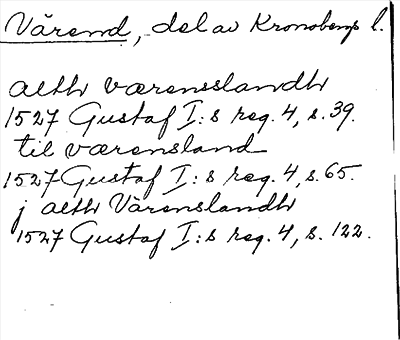 Värend, del av Kronobergs l.
althværensslandh
1527 Gustaf I:s reg. 4, s. 39.
til værensland
1527 Gustaf I:s reg. 4, s. 65.
j alth Värenslandh
1527 Gustaf I:s reg. 4, s. 122.